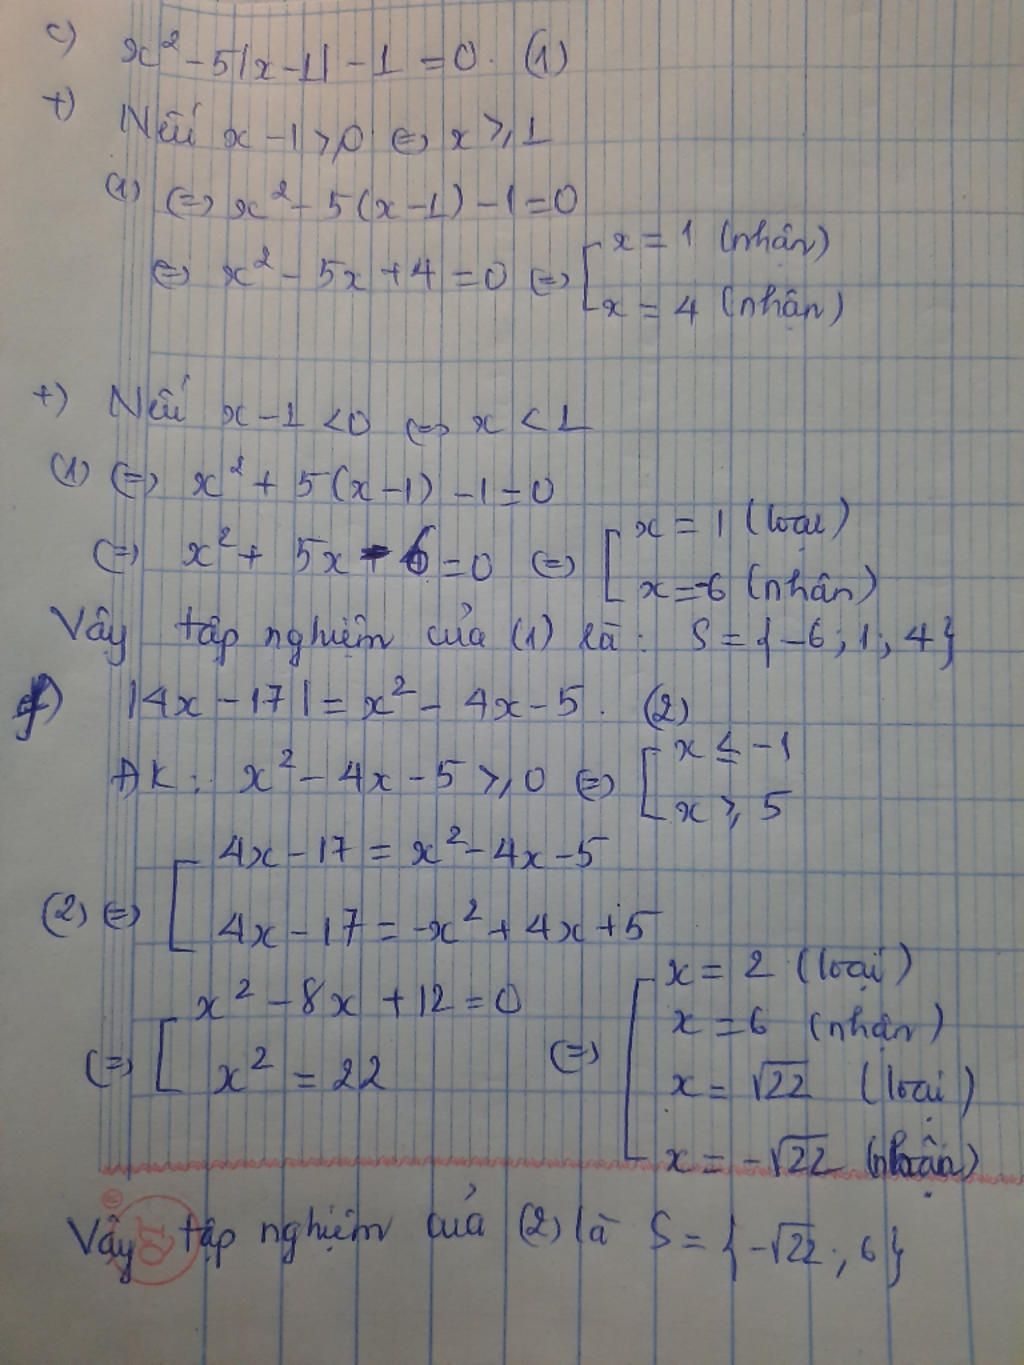 c) x² - 5|x-1| - 1 = 0. (1)
+) Nếu x - 1 ⩾ 0 ⇔ x ⩾ 1
(1) ⇔ x² - 5(x-1) - 1 = 0
⇔ x² - 5x + 4 = 0 ⇔ [ x = 1 (nhận)
x = 4 (nhận)
+) Nếu x - 1 < 0 ⇔ x < 1
(1) ⇔ x² + 5(x-1) - 1 = 0
⇔ x² + 5x - 6 = 0 ⇔ [ x = 1 (loại)
x = -6 (nhận)
Vậy tập nghiệm của (1) là: S = {-6; 1; 4}
|4x - 17| = x² - 4x - 5. (2)
ĐK: x² - 4x - 5 ⩾ 0 ⇔ [ x ≤ -1
x ⩾ 5
(2) ⇔ [ 4x - 17 = x² - 4x - 5
4x - 17 = -x² + 4x + 5
⇔ [ x² - 8x + 12 = 0
x² = 22
⇔ [ x = 2 (loại)
x = 6 (nhận)
x = √22 (loại)
x = -√22 (nhận)
Vậy tập nghiệm của (2) là S = {-√22; 6}